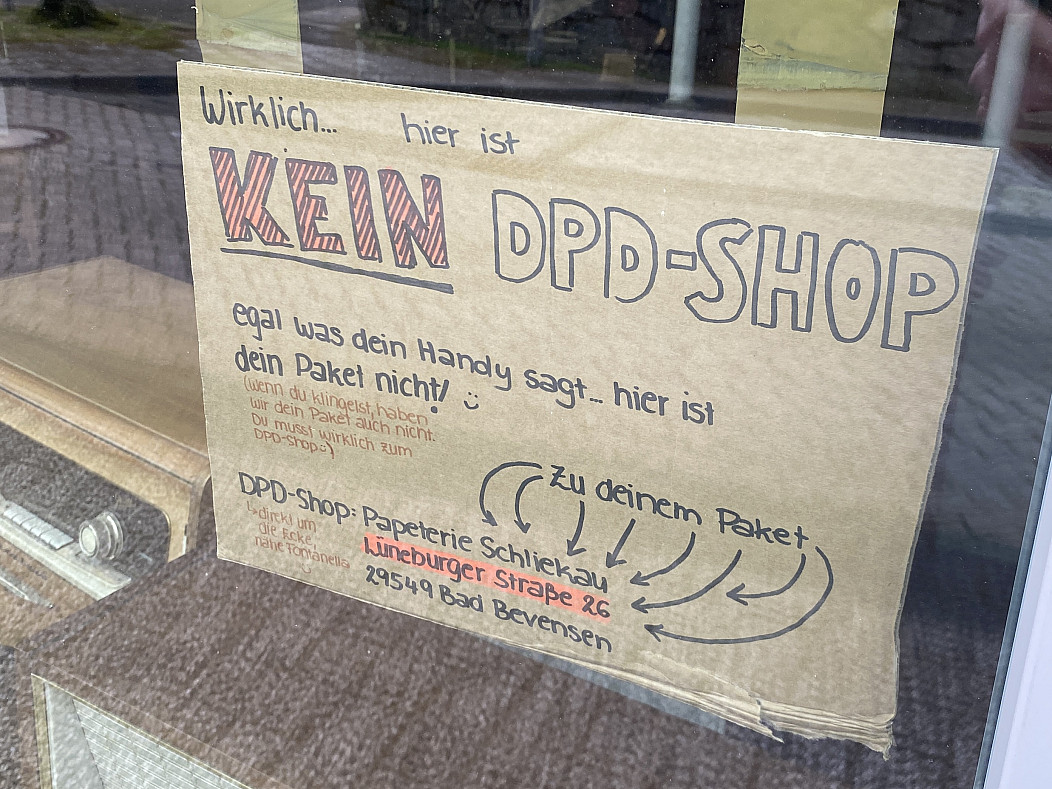 Wirklich... hier ist
KEIN DPD-SHOP
egal was dein Handy sagt... hier ist
dein Paket nicht! :)
(wenn du klingelst, haben
wir dein Paket auch nicht.
Du musst wirklich zum
DPD-Shop :))
Zu deinem Paket
DPD-Shop: Papeterie Schliekau
↳ direkt um
die Ecke
nahe Fontanella
Lüneburger Straße 26
29549 Bad Bevensen